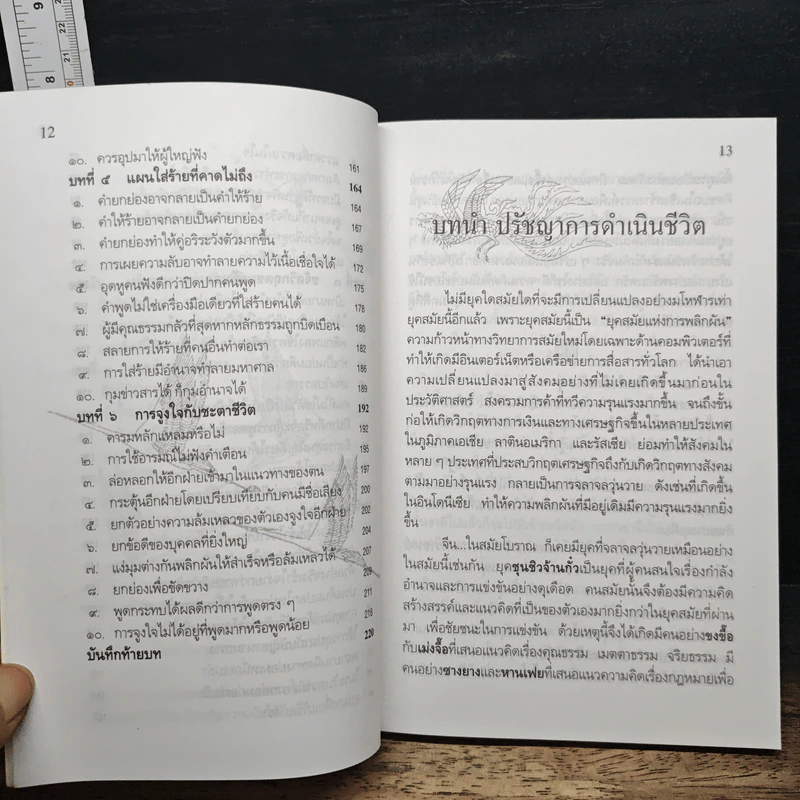 9
8
22
21
12
๑๐. ควรอุปมาให้ผู้ใหญ่ฟัง 161
บทที่ ๕ แผนใส่ร้ายที่คาดไม่ถึง 164
๑. คำยกย่องอาจกลายเป็นคำให้ร้าย 164
๒. คำให้ร้ายอาจกลายเป็นคำยกย่อง 167
๓. คำยกย่องทำให้คู่อริระวังตัวมากขึ้น 169
๔. การเผยความลับอาจทำลายความไว้เนื้อเชื่อใจได้ 172
๕. อุดหูคนฟังดีกว่าปิดปากคนพูด 175
๖. คำพูดไม่ใช่เครื่องมือเดียวที่ใส่ร้ายคนได้ 178
๗. ผู้มีคุณธรรมกลัวที่สุดหากหลักธรรมถูกบิดเบือน 180
๘. สลายการให้ร้ายที่คนอื่นทำต่อเรา 182
๙. การใส่ร้ายมีอำนาจทำลายมหาศาล 186
๑๐. กุมข่าวสารได้ ก็กุมอำนาจได้ 189
บทที่ ๖ การจูงใจกับชะตาชีวิต 192
๑. คารมหลักแหลมหรือไม่ 192
๒. การใช้อารมณ์ไม่ฟังคำเตือน 195
๓. ล่อหลอกให้อีกฝ่ายเข้ามาในแนวทางของตน 197
๔. กระตุ้นอีกฝ่ายโดยเปรียบเทียบกับคนมีชื่อเสียง 200
๕. ยกตัวอย่างความล้มเหลวของตัวเองจูงใจอีกฝ่าย 202
๖. ยกข้อดีของบุคคลที่ยิ่งใหญ่ 204
๗. แง่มุมต่างกันพลิกผันให้สำเร็จหรือล้มเหลวได้ 207
๘. ยกย่องเพื่อขัดขวาง 209
๙. พูดกระทบได้ผลดีกว่าการพูดตรง ๆ 211
๑๐. การจูงใจไม่ได้อยู่ที่พูดมากหรือพูดน้อย 216
บันทึกท้ายบท 220
13
บทนำ ปรัชญาการดำเนินชีวิต
ไม่มียุคใดสมัยใดที่จะมีการเปลี่ยนแปลงอย่างมโหฬารเท่า
ยุคสมัยนี้อีกแล้ว เพราะยุคสมัยนี้เป็น “ยุคสมัยแห่งการพลิกผัน”
ความก้าวหน้าทางวิทยาการสมัยใหม่โดยเฉพาะด้านคอมพิวเตอร์ที่
ทำให้เกิดมีอินเตอร์เน็ตหรือเครือข่ายการสื่อสารทั่วโลก ได้นำเอา
ความเปลี่ยนแปลงมาสู่สังคมอย่างที่ไม่เคยเกิดขึ้นมาก่อนใน
ประวัติศาสตร์ สงครามการค้าที่ทวีความรุนแรงมากขึ้น จนถึงขั้น
ก่อให้เกิดวิกฤตทางการเงินและทางเศรษฐกิจขึ้นในหลายประเทศ
ในภูมิภาคเอเชีย ลาตินอเมริกา และรัสเซีย ย่อมทำให้สังคมใน
หลาย ๆ ประเทศที่ประสบวิกฤตเศรษฐกิจถึงกับเกิดวิกฤตทางสังคม
ตามมาอย่างรุนแรง กลายเป็นการจลาจลวุ่นวาย ดังเช่นที่เกิดขึ้น
ในอินโดนีเซีย ทำให้ความพลิกผันที่มีอยู่เดิมมีความรุนแรงมากยิ่ง
ขึ้น
จีน...ในสมัยโบราณ ก็เคยมียุคที่จลาจลวุ่นวายเหมือนอย่าง
ในสมัยนี้เช่นกัน ยุคชุนชิวจ้านกั๋วเป็นยุคที่ผู้คนสนใจเรื่องกำลัง
อำนาจและการแข่งขันอย่างดุเดือด คนสมัยนั้นจึงต้องมีความคิด
สร้างสรรค์และแนวคิดที่เป็นของตัวเองมากยิ่งกว่าในยุคสมัยที่ผ่าน
มา เพื่อชัยชนะในการแข่งขัน ด้วยเหตุนี้จึงได้เกิดมีคนอย่างขงจื๊อ
กับเม่งจื๊อที่เสนอแนวคิดเรื่องคุณธรรม เมตตาธรรม จริยธรรม มี
คนอย่างซางยางและหานเฟยที่เสนอแนวความคิดเรื่องกฎหมายเพื่อ